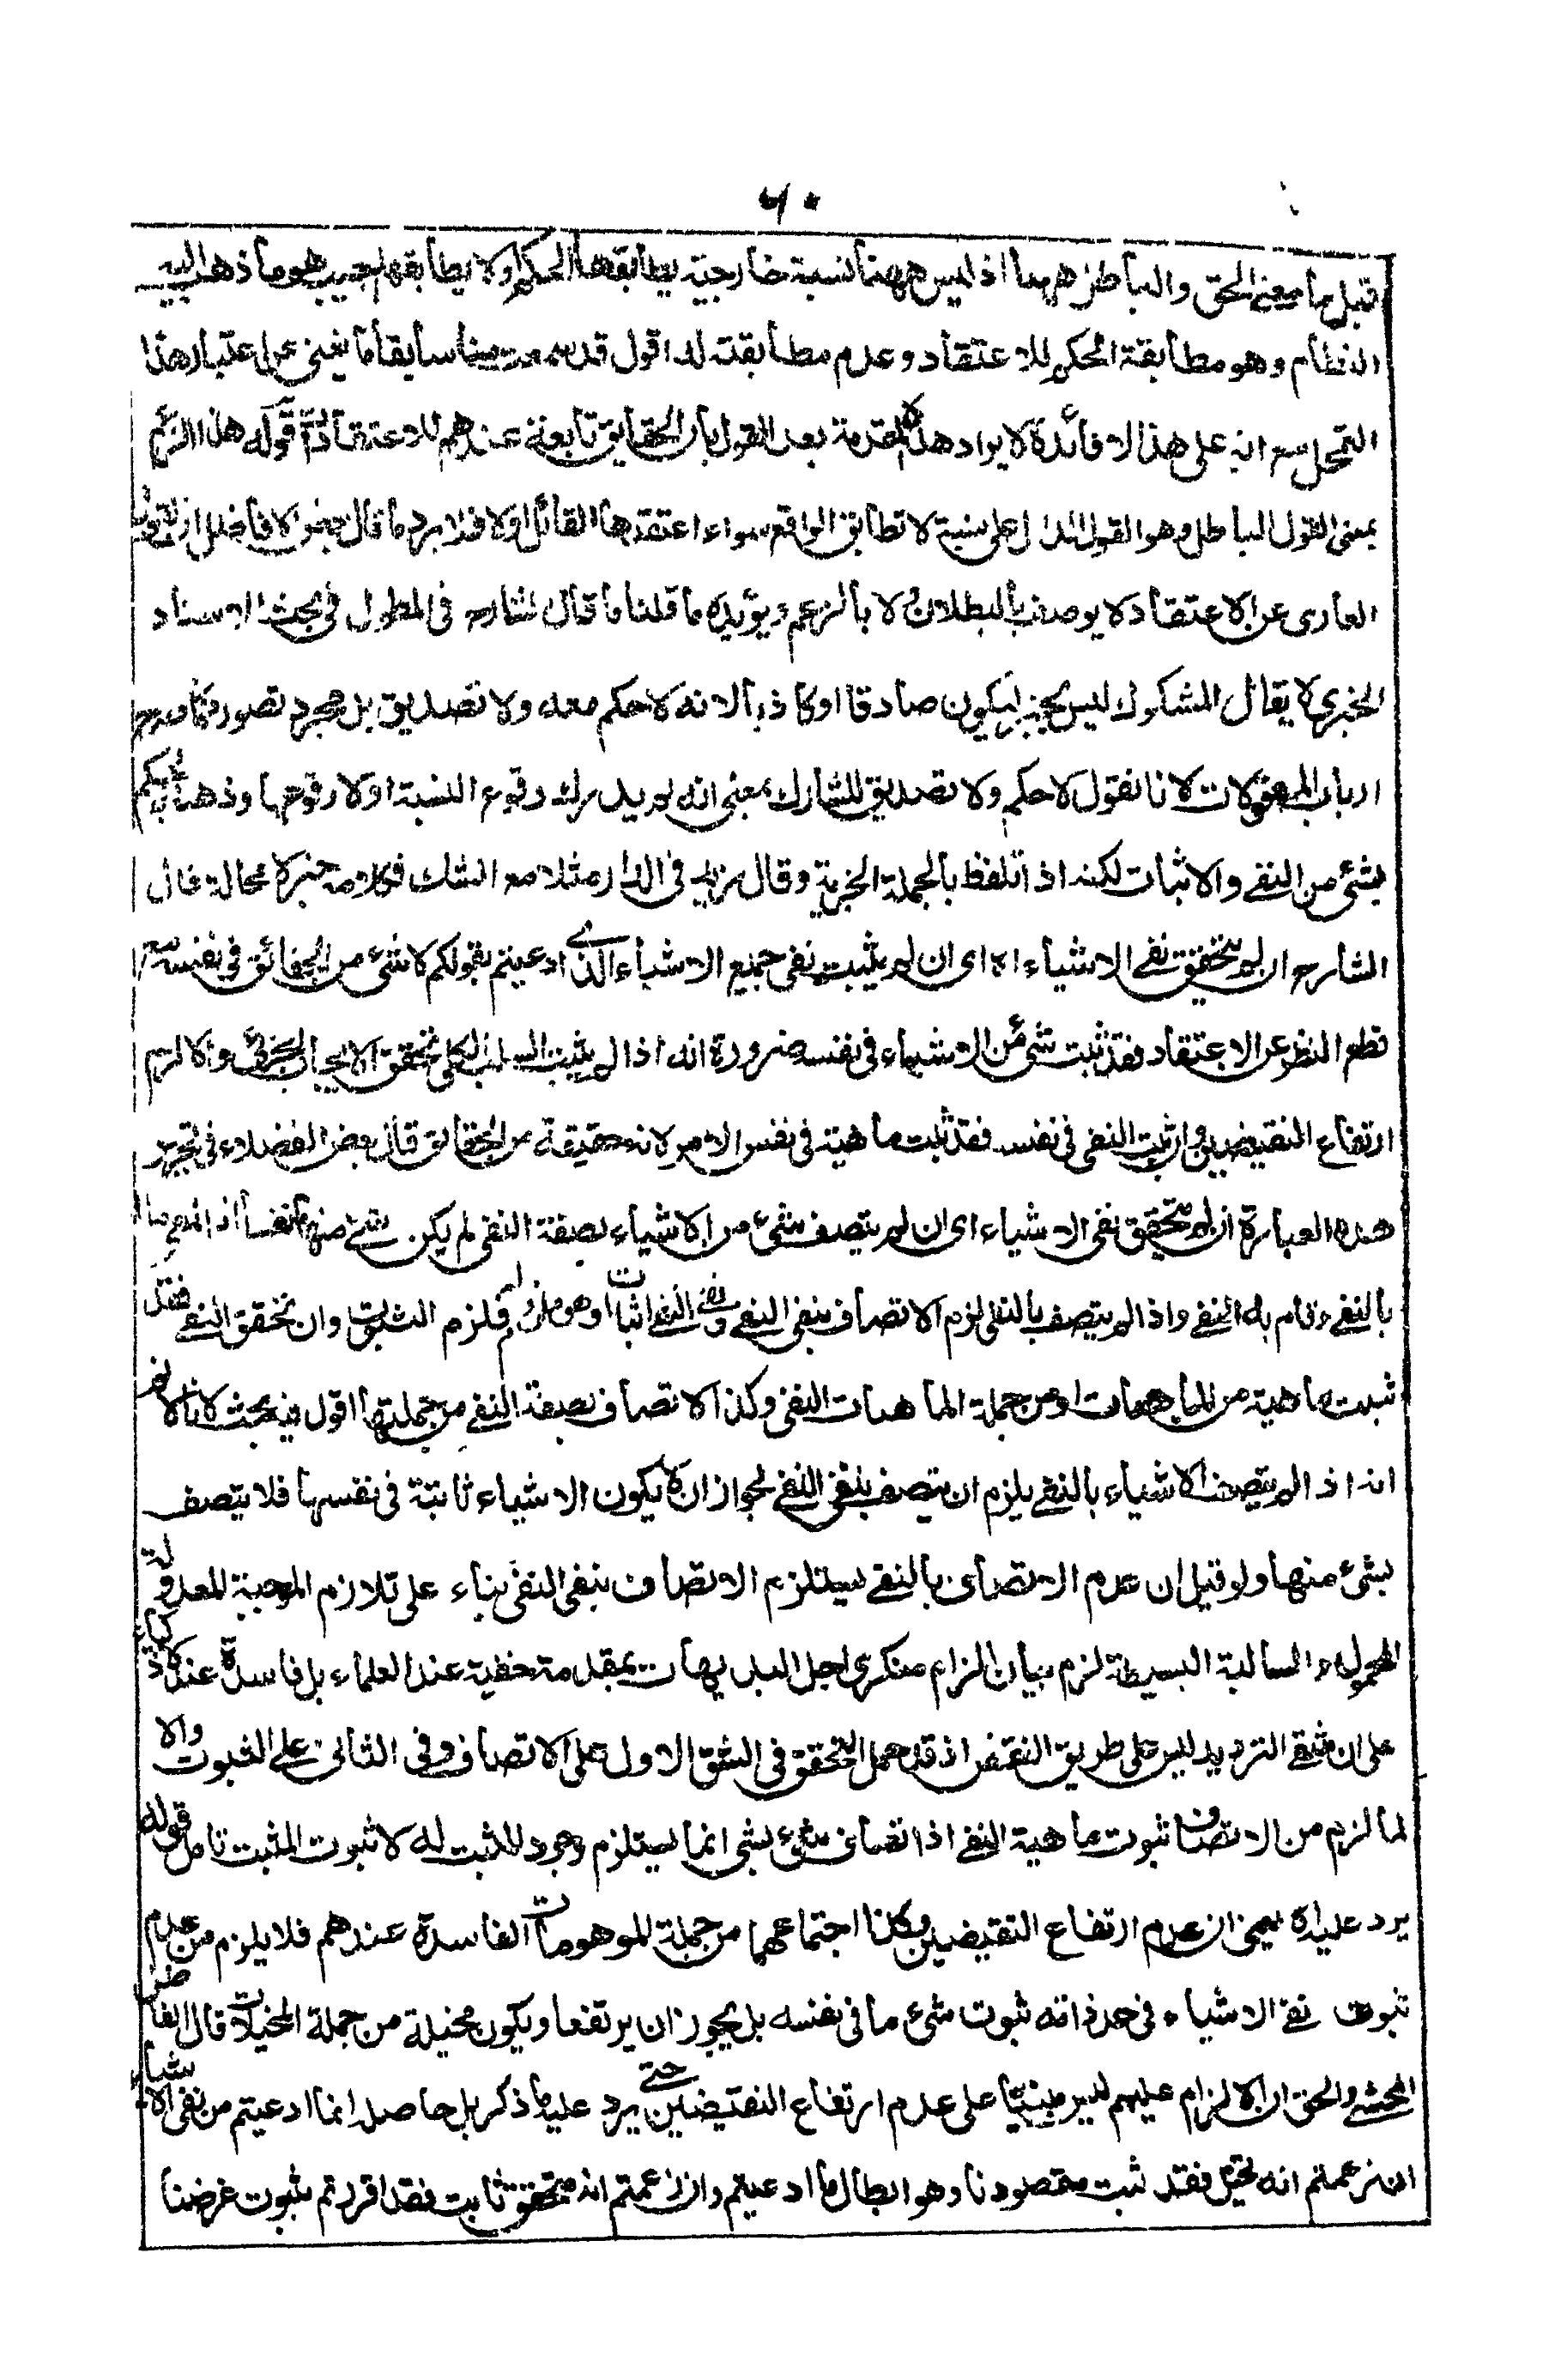 ٦٠
قيل ما معنى الحق والباطل ههنا اذ ليس ههنا نسبة خارجية يطابقها الحكم اولا يطابقها اجيب هو ما ذهب اليه
النظام وهو مطابقة الحكم للاعتقاد وعدم مطابقته له اقول قد سمعت منا سابقا ما يغنى عن اعتبار هذا
التمحل مع انه على هذا لا فائدة لايراد هذه المقدمة بعد القول بان الحقايق تابعة عندهم للاعتقادات قوله هذا الزعم
بمعنى القول الباطل وهو القول الدال على نسبة لا تطابق الواقع سواء اعتقدها القائل اولا فلا يرد ما قال بعض الافاضل ان القول
العارى عن الاعتقاد لا يوصف بالبطلان ولا بالزعم ويؤيده ما قلنا ما قال الشارح فى المطول فى بحث الاسناد
الخبرى لا يقال المشكوك ليس بخبر ليكون صادقا او كاذبا لانه لا حكم معه ولا تصديق بل مجرد تصور كما صرح
ارباب المعقولات لانا نقول لا حكم ولا تصديق للشارك بمعنى انه لم يدرك وقوع النسبة او لا وقوعها وذهنه لم يحكم
بشئ من النفى والاثبات لكنه اذا تلفظ بالجملة الخبرية وقال زيد فى الدار مثلا مع الشك فكلامه خبر لا محالة قال
الشارح ان لم يتحقق نفى الاشياء اه اى ان لم يثبت نفى جميع الاشياء الذى ادعيتم بقولكم لا شئ من الحقائق فى نفسه مع
قطع النظر عن الاعتقاد فقد ثبت شئ من الاشياء فى نفسه ضرورة انه اذا لم يثبت السلب الكلى تحقق الايجاب الجزئى والا لزم
ارتفاع النقيضين وان ثبت النفى فى نفسه فقد ثبت ماهية فى نفس الامر لانه حقيقة من الحقائق قال بعض الفضلاء فى تحرير
هذه العبارة ان لم يتحقق نفى الاشياء اى ان لم يتصف شئ من الاشياء بصفة النفى لم يكن شئ منها منفيا اذ المنفى ما اتصف
بالنفى وقام به النفى واذا لم يتصف بالنفى لزم الاتصاف بنفى النفى ونفى النفى اثبات او هو ملزوم له فلزم الثبوت وان تحقق النفى فقد
ثبت ماهية من الماهيات او من جملة الماهيات النفى وكذا الاتصاف بصفة النفى من جملتها اقول فيه بحث لانا لا نم
انه اذا لم يتصف الاشياء بالنفى يلزم ان يتصف بنفى النفى لجواز ان لا يكون الاشياء ثابتة فى نفسها فلا يتصف
بشئ منها ولو قيل ان عدم الاتصاف بالنفى يستلزم الاتصاف بنفى النفى بناء على تلازم الموجبة المعدولة
المحمول والسالبة البسيطة لزم بيان الزام منكرى اجل البديهيات بمقدمة خفية عند العلماء بل فاسدة عند
على ان شقى الترديد ليس على طريق النقض اذ قد حمل التحقق فى الشق الاول على الاتصاف وفى الثانى على الثبوت والا
لما لزم من الاتصاف ثبوت ماهية النفى اذ اتصاف شئ بشئ انما يستلزم وجود المثبت له لا ثبوت المثبت تامل قوله
يرد عليه اه يعنى ان عدم ارتفاع النقيضين وكذا اجتماعهما من جملة الموهومات الفاسدة عندهم فلا يلزم من عدم
ثبوت نفى الاشياء فى حد ذاته ثبوت شئ ما فى نفسه بل يجوز ان يرتفعا ويكون مخيلة من جملة المخيلات قال الفاضل
المحشى والحق ان الالزام عليهم ليس مبنيا على عدم ارتفاع النقيضين حتى يرد عليه ما ذكر بل حاصله انما ادعيتم من نفى الاشياء
ان زعمتم انه تخيل فقد ثبت مقصودنا وهو ابطال ما ادعيتم وان زعمتم انه متحقق ثابت فقد اقررتم بثبوت غرضنا